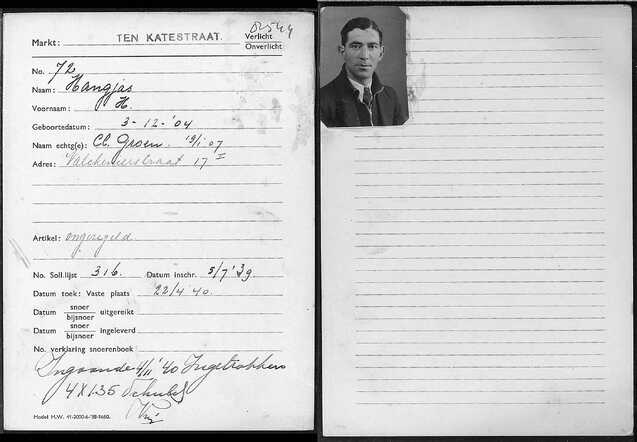 Markt: TEN KATESTRAAT.
Verlicht
Onverlicht
No. 72
Naam: Hangjas
Voornaam: H.
Geboortedatum: 3-12-'04
Naam echtg(e): Cl. Groen 19/1 07
Adres: Valckenierstraat 17 I
Artikel: ongeregeld
No. Soll.lijst 316. Datum inschr. 5/7 '39.
Datum toek: Vaste plaats 22/4 '40.
Datum snoer/bijsnoer uitgereikt
Datum snoer/bijsnoer ingeleverd
No. verklaring snoerenboek
Ingaande 4/11 '40 Ingetrokken
4 X 1.35 Schuld
Model M.W.